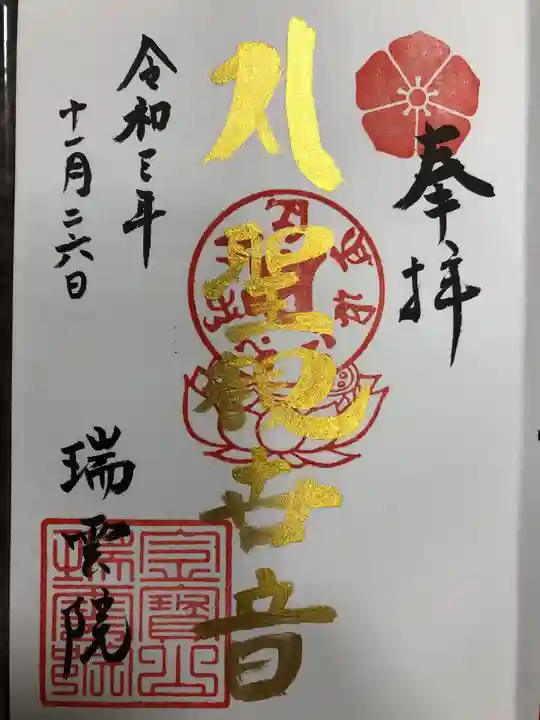 奉拝
聖観世音
令和三年
十一月二六日
瑞雲院